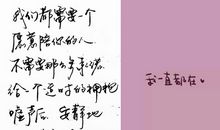 我们都需要一个
愿意陪你的人
不需要那么多承诺
给一个适时的拥抱
嘘声后 安静地
我一直都在